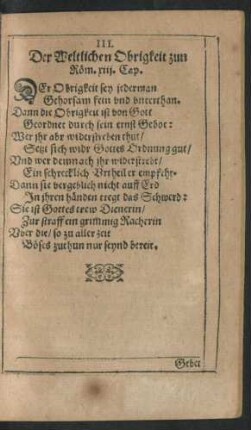 III.
Der Weltlichen Obrigkeit zun
Röm. xiij. Cap.
DEr Obrigkeit sey jederman
Gehorsam fein vnd vnterthan.
Dann die Obrigkeit ist von Gott
Geordnet durch sein ernst Gebot:
Wer jhr abr widerstreben thut/
Setzt sich widr Gottes Ordnung gut/
Vnd wer demnach jhr widerstrebt/
Ein schrecklich Vrtheil er empfeht.
Dann sie vergeblich nicht auff Erd
In jhren händen tregt das Schwerd:
Sie ist Gottes trew Dienerin/
Zur straff ein grimmig Racherin
Vber die/ so zu aller zeit
Böses zuthun nur seynd bereit.
Gebet